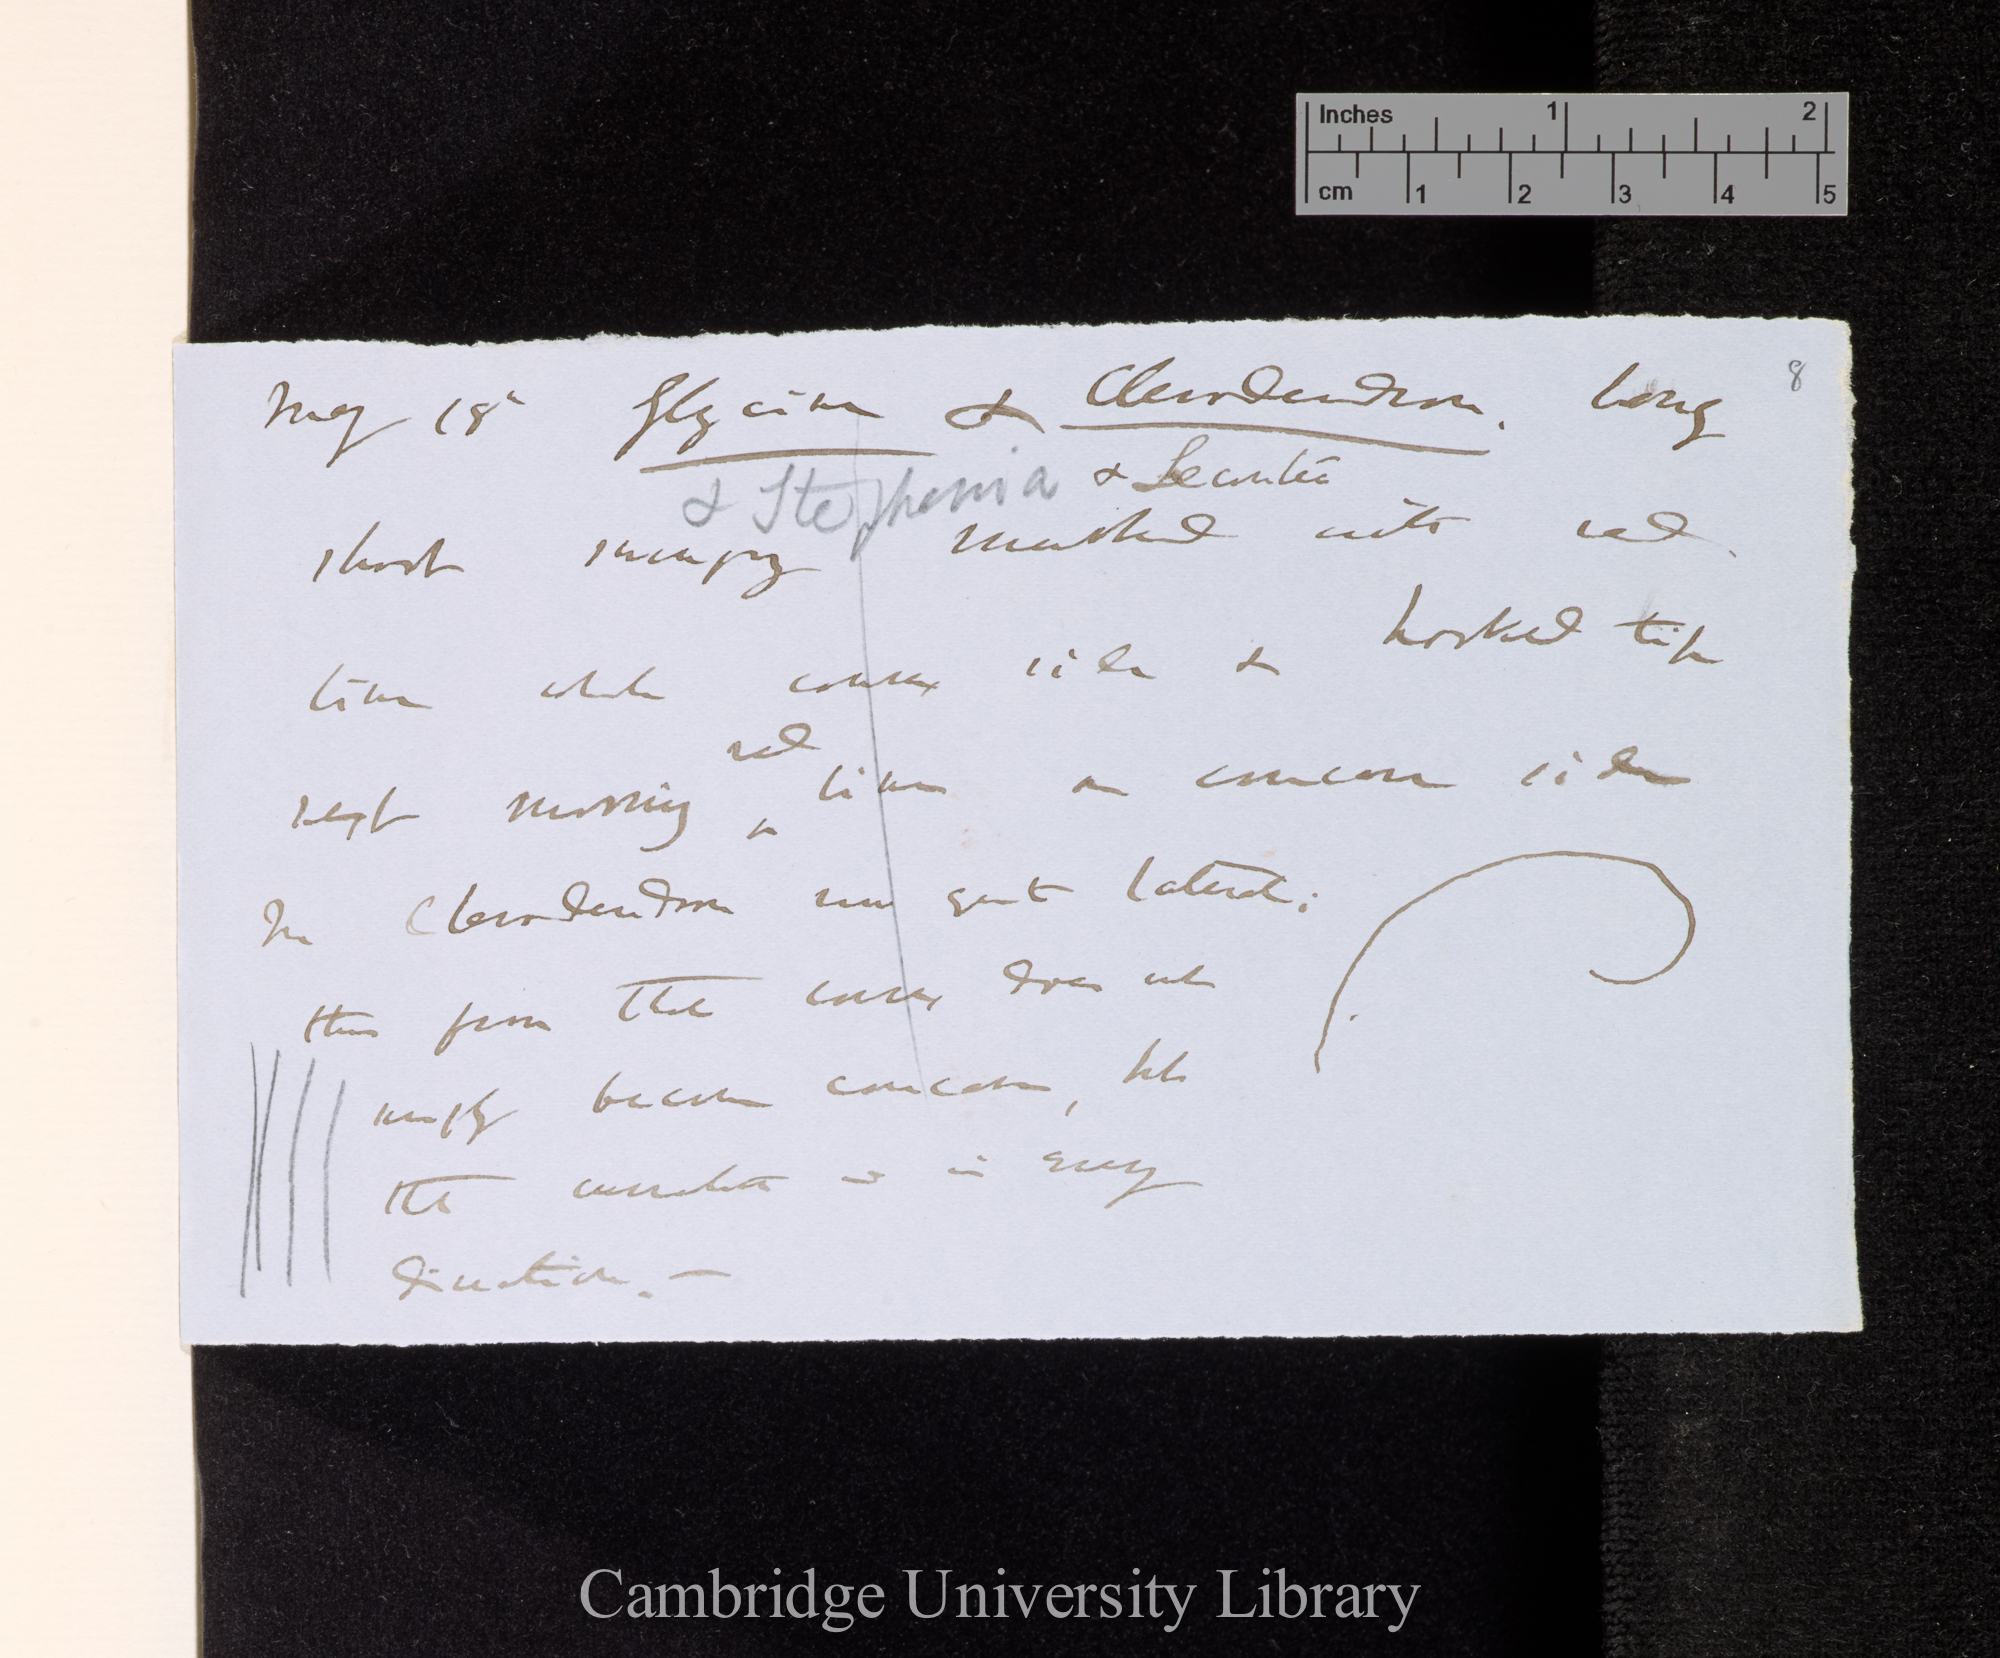 Inches 1 2
cm 1 2 3 4 5
8
May 18 Glycine & Clerodendron. Long
& Stephania & Lecontea
shoot sweeping marked with red
line when convex side & hooked tip
kept moving red line on concave side
In Clerodendron now quite lateral;
thus from that convex does not
simply become concave, but
the curvature is in every
direction. —
Cambridge University Library